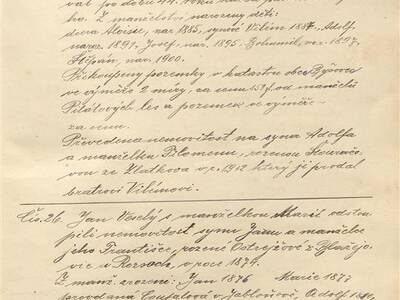 val po dobu 44. roků
ha. Z manželství narozeny děti:
dcera Aloisie, nar. 1885, synové Vilém 1887, Adolf
naroz. 1891, Josef, nar. 1895, Bohumil, nar. 1897,
Štěpán, nar. 1900.
Přikoupeny pozemky v katastru obce
ve výměře 2 míry, za cenu od manželů
Pilátových les a pozemek ve výměře
za cenu.
Převedena nemovitost na syna Adolfa
a manželku Filomenu, rozenou
vou ze Zlatkova v r. 1912 který ji prodal
bratrovi Vilémovi.
Čís. 26. Jan Veselý s manželkou Marií odstou-
pili nemovitost synu Janu a manželce
jeho Františce, rozené Ostrejžové z
vic v Rozsoch, v roce 1874.
Z manž. zrozeni: Jan 1876 Marie 1877
provdaná v Adolf